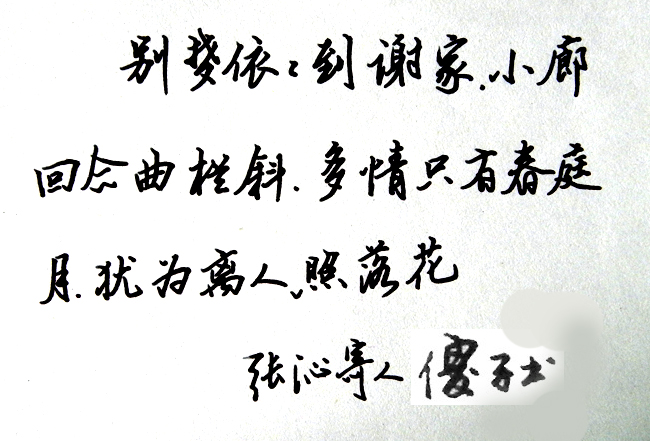 别梦依々到谢家.小廊
回合曲栏斜.多情只有春庭
月.犹为离人、照落花
张泌寄人 傻子书